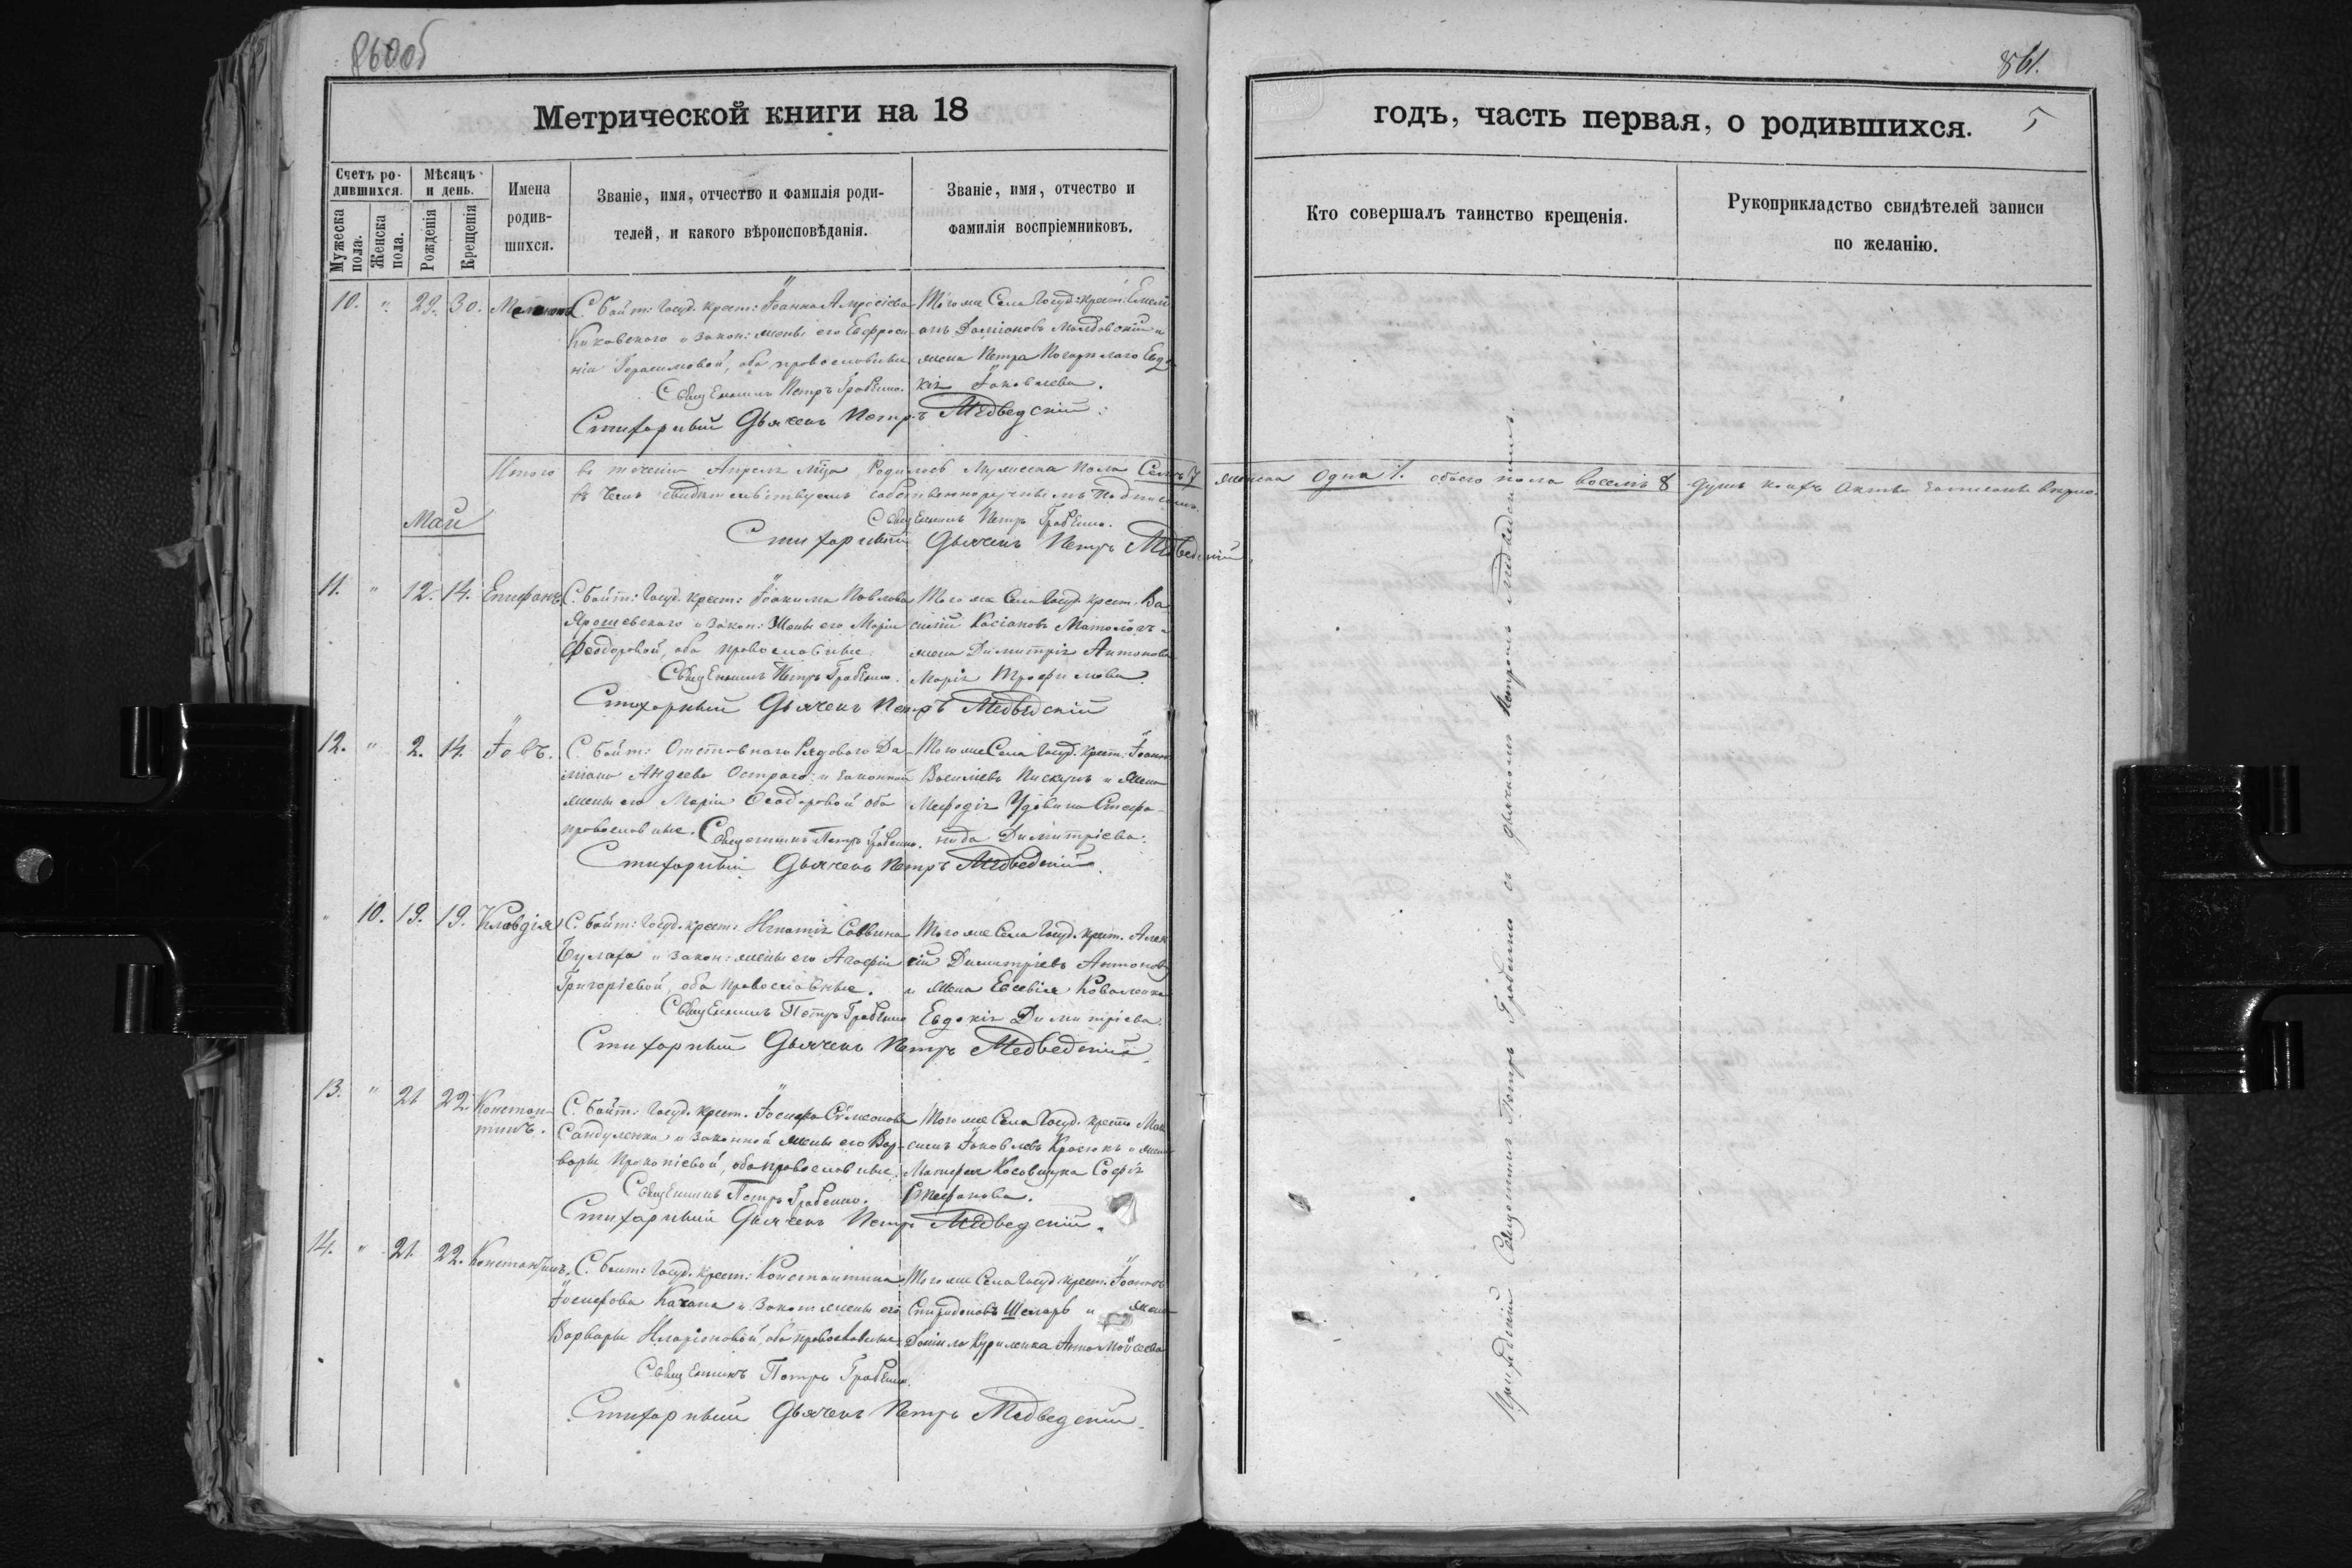 860об
Метрической книги на 18
Счетъ ро-
дившихся.
Мѣсяцъ
и день.
Мужеска
пола.
Женска
пола.
Рожденія
Крещенія
Имена
родив-
шихся.
Званіе, имя, отчество и фамилія роди-
телей, и какого вѣроисповѣданія.
Званіе, имя, отчество и
фамилія воспріемниковъ.
10. " 29. 30.
С. Байт: Госуд. крест: Іоанна
и закон: жены его Евфроси
ніи Герасимовой, оба православные
Священникъ Петръ Грабенко.
Стихарный Дьячекъ Петръ Медведскій.
Того же Села Госуд: крест: Емели
анъ Даміановъ и
жена Петра Евдо
кія Іаковлева.
Итого въ теченіи Апреля мца Родилось Мужеска пола Семь 7
въ чемъ свидѣтельствуемъ собственноручнымъ подписомъ.
Священникъ Петръ Грабенко.
Стихарный Дьячекъ Петръ Медведскій
Май
11. " 12. 14. Епифанъ
С. Байт: Госуд. крест: Іоакима Павлова
Ярошевского и закон: жены его Маріи
Феодоровой, оба православные.
Священникъ Петръ Грабенко.
Стихарный Дьячекъ Петръ Медведскій
Того же Села Госуд. крест. Ва
силій Касіановъ
жена Димитрія Антонова
Марія Трофимова.
12. " 2. 14. Іовъ.
С. Байт: Отстав́наго Рядового Да-
міана Андреева Остраго и законной
жены его Маріи Феодоровой оба
православные. Священникъ Петръ Грабенко.
Стихарный Дьячекъ Петръ Медведскій.
Того же Села Госуд. крест. Іоаннъ
Василіевъ Пискунъ и жена
Мефодія Удовина Стефа-
нида Димитріева.
" 10. 19. 19. Клавдія
С. Байт: Госуд. крест: Игнатія Саввина
и закон: жены его Агафіи
Григоріевой, оба православные.
Священникъ Петръ Грабенко
Стихарный Дьячекъ Петръ Медведскій.
Того же Села Госуд. крест. Алек
сій Димитріевъ Антоновъ
и жена Евсевія Коваленка
Евдокія Димитріева.
13. " 21 22. Констан-
тинъ.
С. Байт: Госуд. крест. Іосифа Симеонова
Сандуленка и законной жены его Вар-
вары Прокопіевой, оба православные.
Священникъ Петръ Грабенко.
Стихарный Дьячекъ Петръ Медведскій.
Того же Села Госуд. крест. Мак
симъ Іаковлевъ и жена
Матфея Софія
Стефанова.
14. " 21. 22. Константинъ.
С. Байт: Госуд. крест: Константина
Іосифова Качана и закон: жены его
Варвары Иларіоновой, оба православные.
Священникъ Петръ Грабенко.
Стихарный Дьячекъ Петръ Медведскій
Того же Села Госуд. крест. Іоаннъ
Спиридоновъ и жена
Даніила Куриленка Анна Моѵсеева
861.
годъ, часть первая, о родившихся. 5
Кто совершалъ таинство крещенія.
Рукоприкладство свидѣтелей записи
по желанію.
женска Одна 1. обоего пола восемь 8 душъ коихъ Акты записаны вѣрно.
Приходскій Священникъ Петръ Грабенко съ дьячкомъ Петромъ Медведскимъ.